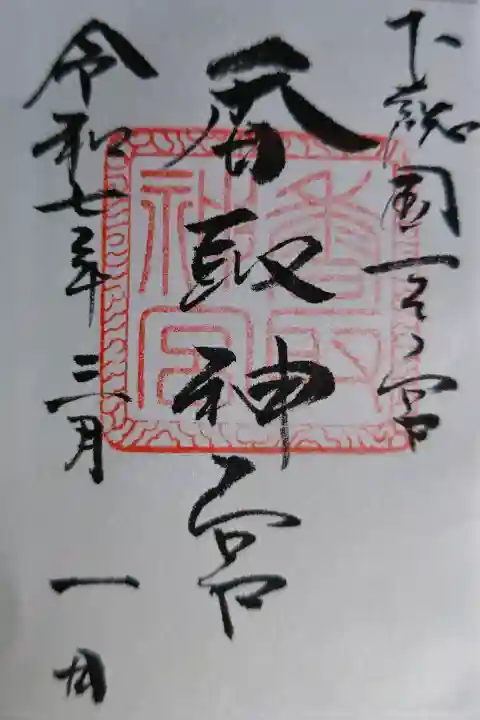 下総国一之宮
香取神宮
令和七年三月一日
香取神宮